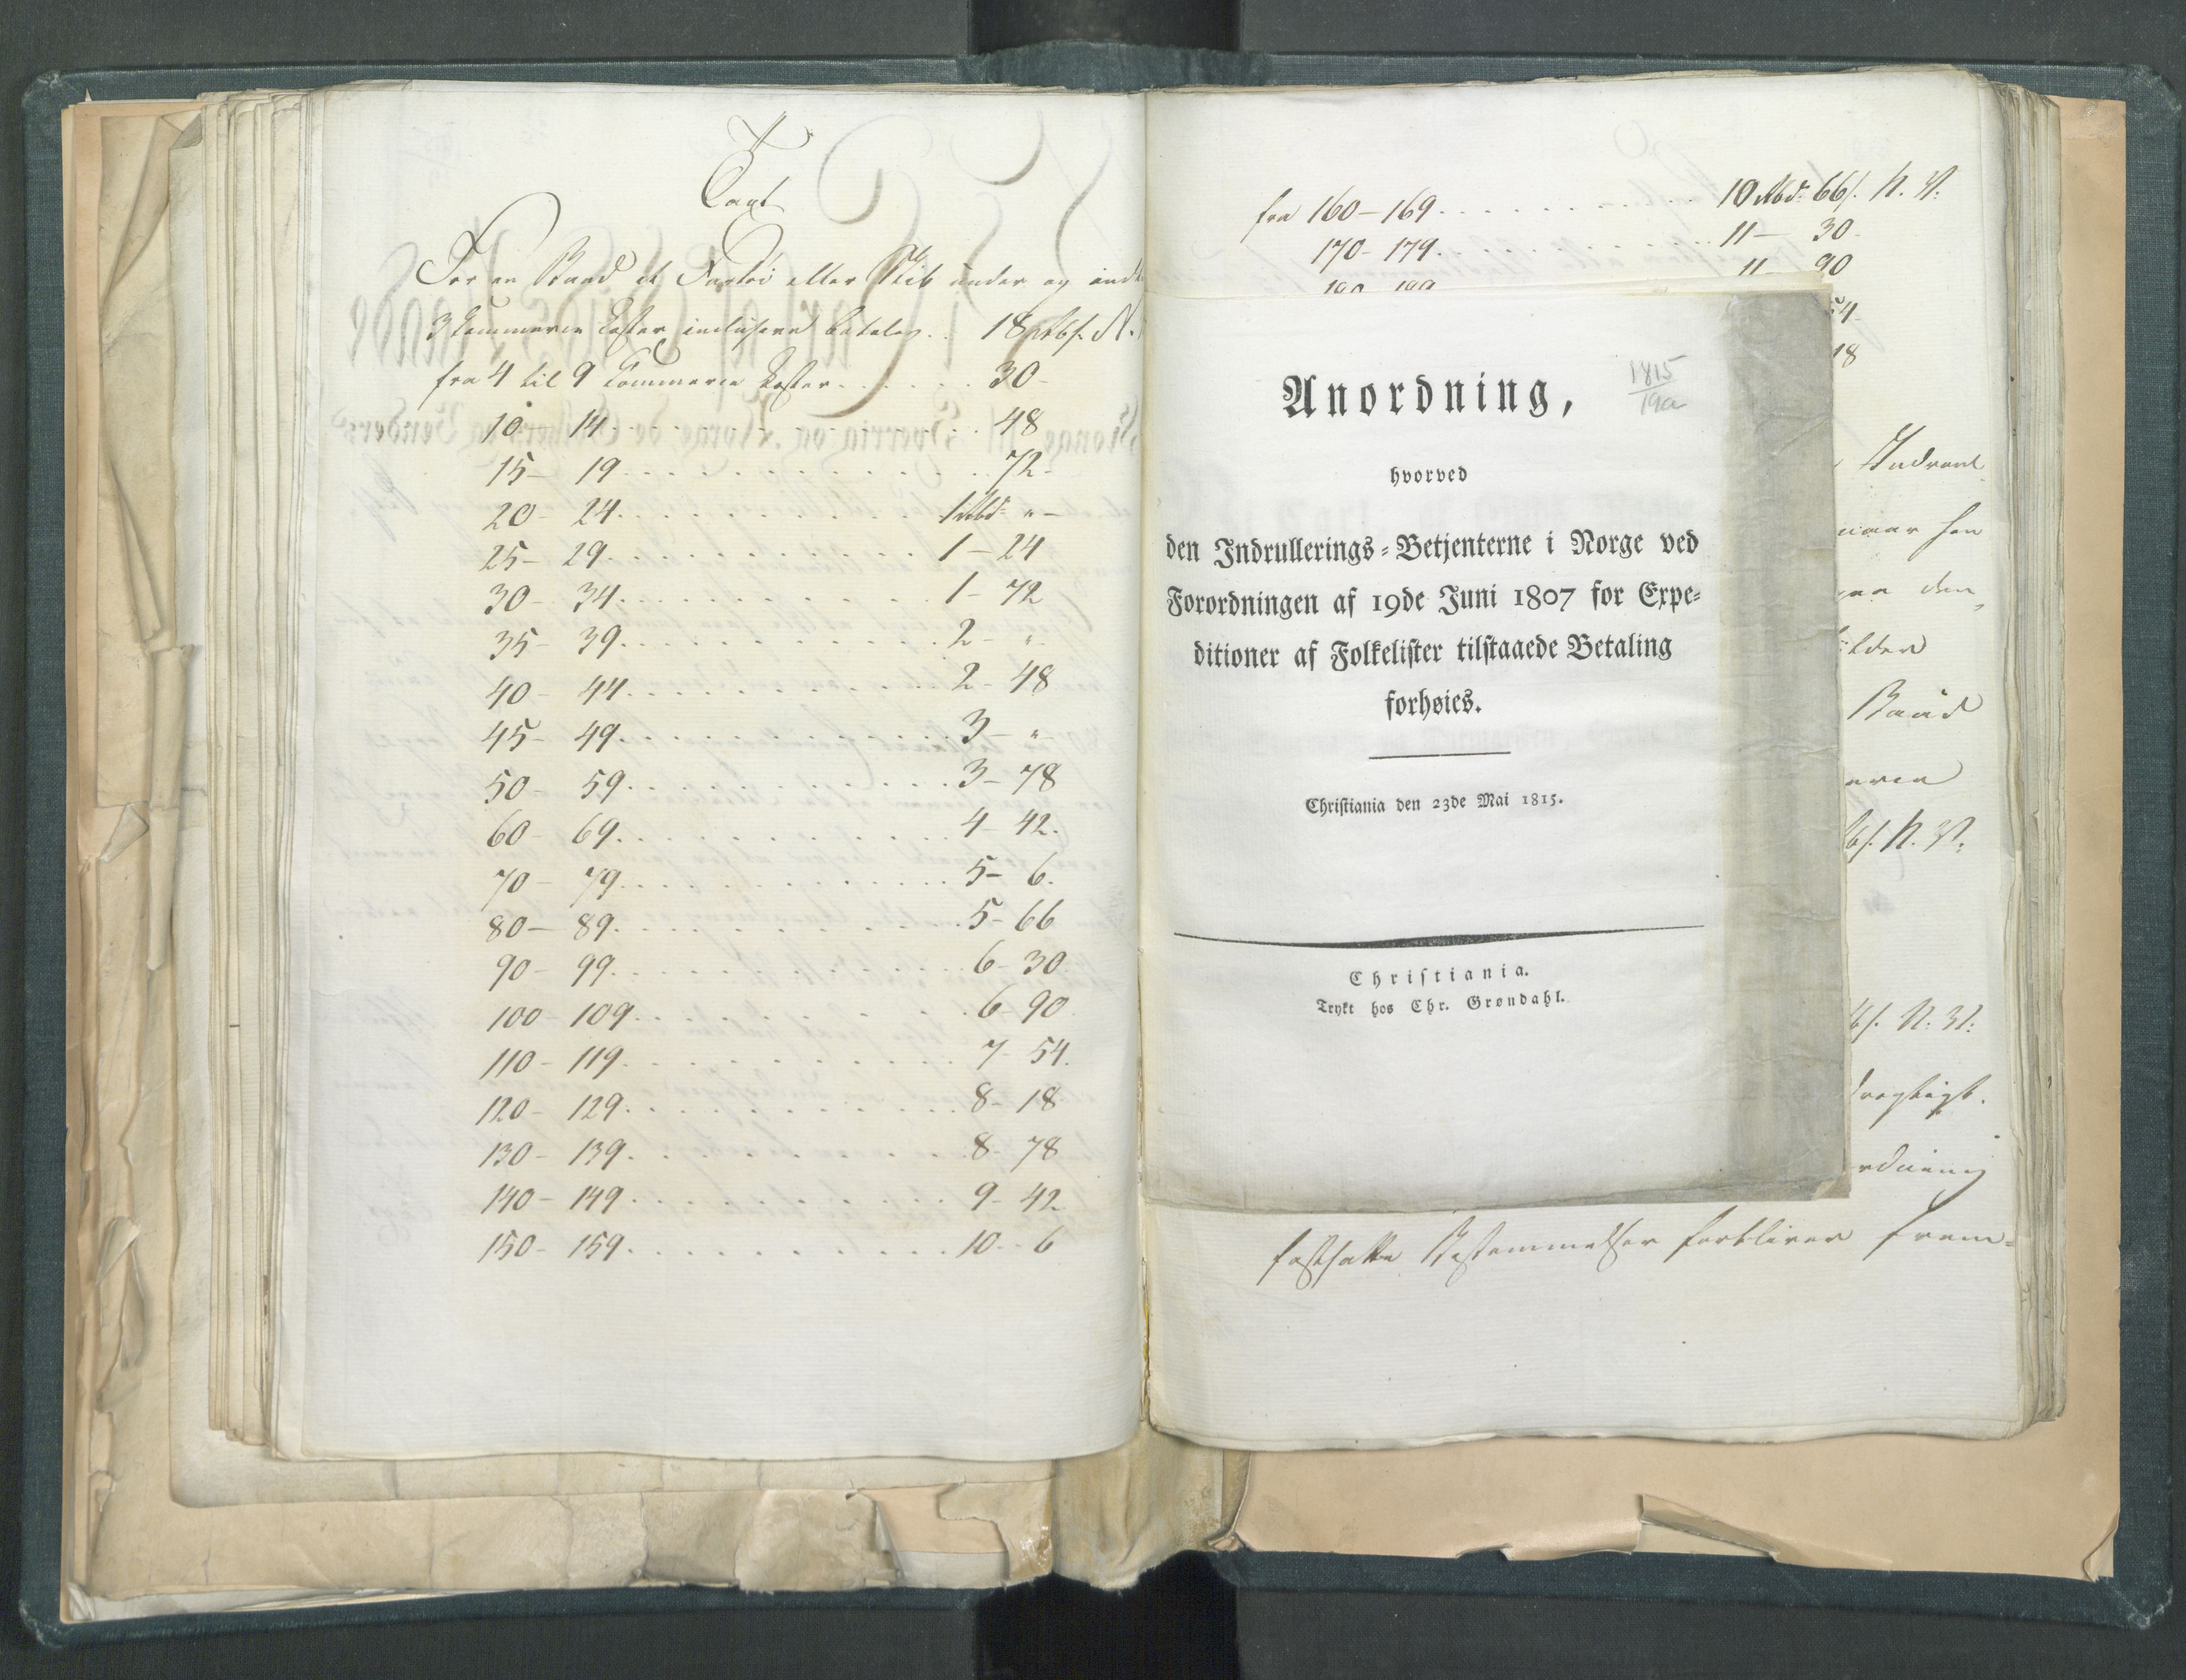 Taxt
For en Baad et Fartøi eller Skib under og
3 Commerce Læster inclusive betales . . 18 rbß. N.
fra 4 til 9 Commerce Læster . . . . . . 30 -
10 - 14 . . . . . . . . . . . . 48
15 - 19 . . . . . . . . . . . . 72 -
20 - 24 . . . . . . . . . . . . 1 Rbd: " -
25 - 29 . . . . . . . . . . . . 1 - 24
30 - 34 . . . . . . . . . . . . 1 - 72
35 - 39 . . . . . . . . . . . . 2 - "
40 - 44 . . . . . . . . . . . . 2 - 48
45 - 49 . . . . . . . . . . . . 3 - "
50 - 59 . . . . . . . . . . . . 3 - 78
60 - 69 . . . . . . . . . . . . 4 - 42.
70 - 79 . . . . . . . . . . . . 5 - 6.
80 - 89 . . . . . . . . . . . . 5 - 66
90 - 99 . . . . . . . . . . . . 6 - 30
100 - 109 . . . . . . . . . . . 6 - 90
110 - 119 . . . . . . . . . . . 7 - 54.
120 - 129 . . . . . . . . . . . 8 - 18
130 - 139 . . . . . . . . . . . 8 - 78
140 - 149 . . . . . . . . . . . 9 - 42
150 - 159 . . . . . . . . . . . 10 - 6
fra 160 - 169 . . . . . . . . . 10 Rbd: 66ß. N. V.
170 - 179 . . . . . . . . . 11 - 30 -
11 - 90
54
18
1815
19a
Anordning,
hvorved
den Indrullerings-Betjenterne i Norge ved
Forordningen af 19de Juni 1807 for Expe-
ditioner af Folkelister tilstaaede Betaling
forhøies.
Christiania den 23de Mai 1815.
Christiania.
Trykt hos Chr. Grøndahl.
naar han
paa den
Baad
N. V.
N. V.
fastsatte Bestemmelser forbliver frem-